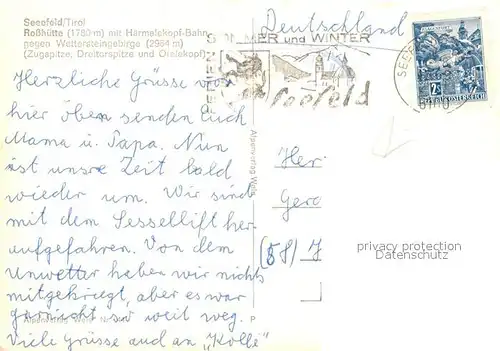 Seefeld/Tirol
Roßhütte (1780 m) mit Härmelekopf-Bahn
gegen Wettersteingebirge (2964 m)
(Zugspitze, Dreitorspitze und Öfelekopf)
Deutschland
SOMMER und WINTER
Seefeld
REPUBLIK ÖSTERREICH
Herzliche Grüsse von
hier oben senden Euch
Mama u. Papa. Nun
ist unsre Zeit bald
wieder um. Wir sind
mit dem Sessellift her-
aufgefahren. Von dem
Unwetter haben wir nichts
mitgekriegt, aber es war
garnicht so weit weg.
Viele Grüsse auch an "Kolle"
Alpenverlag
P
Her
Gero
(58) J
privacy protection